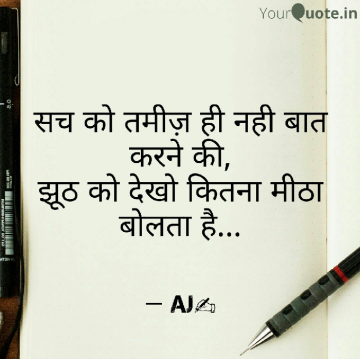 YourQuote.in
सच को तमीज़ ही नही बात
करने की,
झूठ को देखो कितना मीठा
बोलता है...
— AJ✍